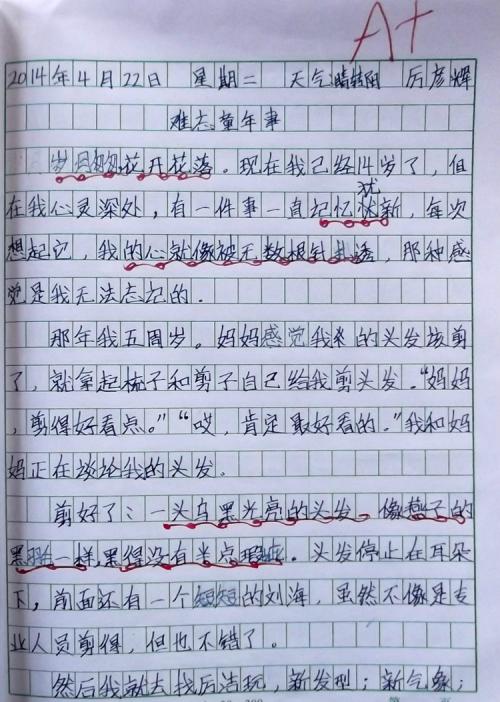 A+
2014年4月22日 星期二 天气:晴转阴 厉彦辉
难忘童年事
岁月匆匆花开花落。现在我已经14岁了,但
犹
在我心灵深处,有一件事一直记忆犹新,每次
想起它,我的心就像被无数根针扎透,那种感
觉是我无法忘记的.
那年我五周岁。妈妈感觉我的头发该剪
了,就拿起梳子和剪子自己给我剪头发."妈妈
,剪得好看点。""哎,肯定最好看的."我和妈
妈正在谈论我的头发.
剪好了:一头乌黑光亮的头发,像燕子的
黑羽一样黑得没有半点瑕疵。头发停止在耳朵
下,前面还有一个短短的刘海,虽然不像是专
业人员剪得,但也不错了。
然后我就去找厉洁玩,新发型;新气象;